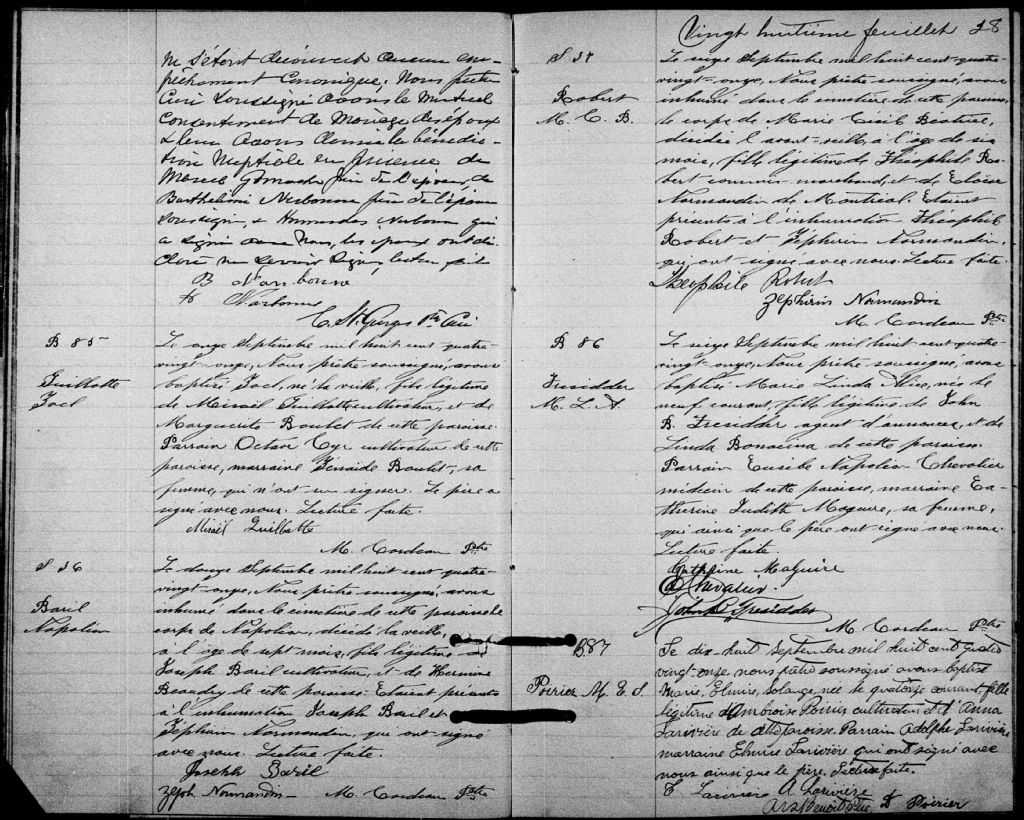 ne s'étant découvert aucun em-
pêchement Canonique; Nous prêtre
Curé Soussigné avons le Mutuel
Consentement de Mariage des époux
& leur avons donné la bénédic-
tion Nuptiale en présence de
Marcel Gamache père de l'époux, de
Barthelemi Narbonne père de l'épouse
soussigné, & Narbonne qui
a signé avec Nous, les époux ont dé-
claré ne savoir signer, lecture faite
B Narbonne
Narbonne
C. St. Georges Ptre Curé
B 85
Guillotte
Joel
Le onze Septembre mil huit cent quatre-
vingt-onze, Nous prêtre soussigné, avons
baptisé Joel, né la veille, fils légitime
de Misaël Guillotte cultivateur, et de
Marguerite Boulet de cette paroisse.
Parrain Octave Cyr cultivateur de cette
paroisse, marraine Zenaide Boulet, sa
femme, qui n'ont su signer. Le père a
signé avec nous. Lecture faite.
Misaël Guillotte
M. Cordeau Ptre
S 36
Baril
Napoléon
Le douze Septembre mil huit cent quatre-
vingt-onze, Nous prêtre soussigné, avons
inhumé dans le cimetière de cette paroisse le
corps de Napoléon, décédé la veille,
à l'âge de sept mois, fils légitime de
Joseph Baril cultivateur, et de Hermine
Beaudry de cette paroisse. Etaient présents
à l'inhumation Joseph Baril et
Zéphirin Normandin, qui ont signé
avec nous. Lecture faite.
Joseph Baril
Zeph. Normandin M. Cordeau Ptre
Vingt huitième feuillet 28
S 37
Robert
M. C. B.
Le onze Septembre mil huit cent quatre-
vingt-onze, Nous prêtre soussigné, avons
inhumé dans le cimetière de cette paroisse,
le corps de Marie Cécile Béatrice,
décédée l'avant-veille, à l'âge de six
mois, fille légitime de Théophile Ro-
bert commis-marchand, et de Eloïse
Normandin de Montréal. Etaient
présents à l'inhumation Théophile
Robert et Zéphirin Normandin,
qui ont signé avec nous. Lecture faite.
Theophile Robert
Zephirin Normandin
M. Cordeau Ptre
B 86
Tresidder
M. L. A.
Le seize Septembre mil huit cent quatre-
vingt-onze, Nous prêtre soussigné, avons
baptisé Marie Linda Alice, née le
neuf courant, fille légitime de John
B. Tresidder agent d'annonces, et de
Linda de cette paroisse.
Parrain Eusèbe Napoléon Chevalier
médecin de cette paroisse, marraine Ca-
therine Judith Maguire, sa femme,
qui ainsi que le père ont signé avec nous.
Lecture faite.
Catherine Maguire
Chevalier.
John B Tresidder
M. Cordeau Ptre
B.87
Poirier M. E. S.
Le dix-huit septembre mil huit cent quatre
vingt onze, nous prêtre soussigné avons baptisé
Marie, Elmire, Solange, née le quatorze courant, fille
légitime d'Ambroise Poirier cultivateur et d'Anna
Larivière de cette paroisse. Parrain Adolphe Larivière
marraine Elmire Larivière qui ont signé avec
nous ainsi que le père. Lecture faite.
E Lariviere A Larivière
Benoit Ptre A Poirier